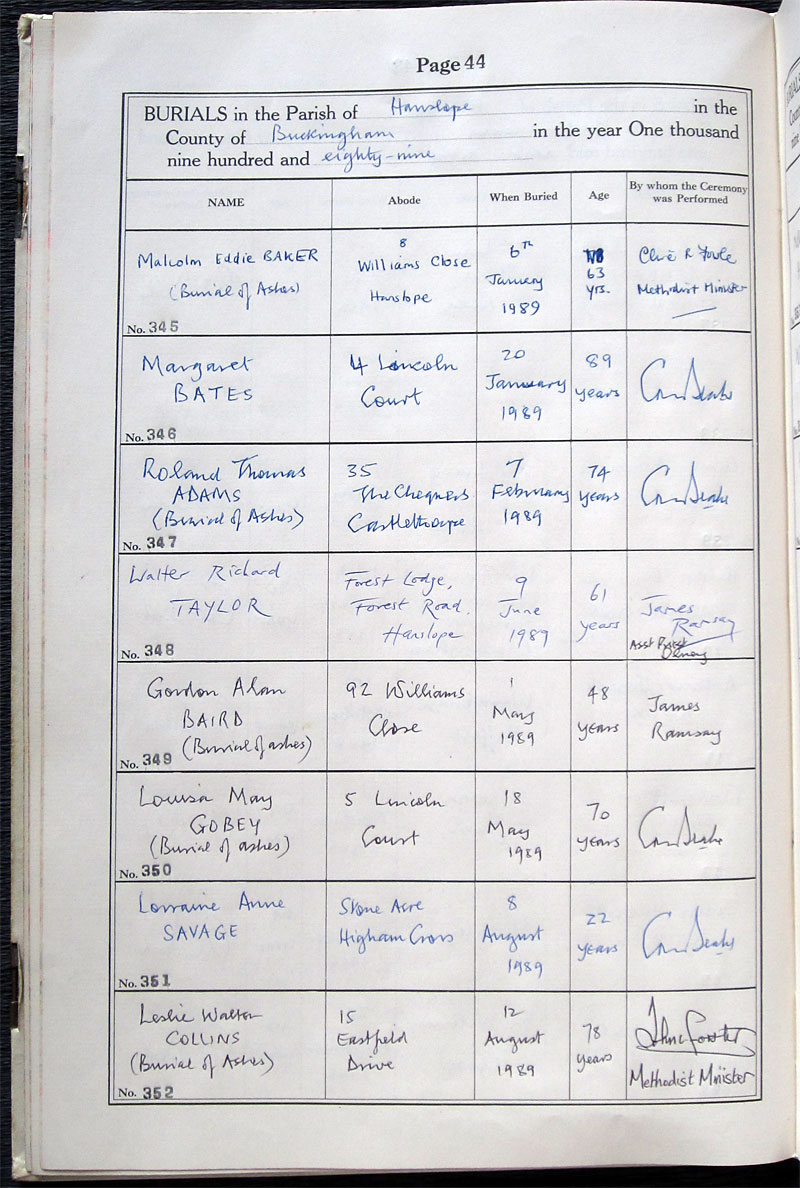 Page 44
BURIALS in the Parish of Hanslope in the
County of Buckingham in the year One thousand
nine hundred and eighty-nine
NAME
Abode
When Buried
Age
By whom the Ceremony
was Performed
Malcolm Eddie BAKER
(Burial of Ashes)
No. 345
8
Williams Close
Hanslope
6th
January
1989
63
yrs.
Clive R Fowle
Methodist Minister
Margaret
BATES
No. 346
4 Lincoln
Court
20
January
1989
89
years
Roland Thomas
ADAMS
(Burial of Ashes)
No. 347
35
The Chequers
Castlethorpe
7
February
1989
74
years
Walter Richard
TAYLOR
No. 348
Forest Lodge,
Forest Road,
Hanslope
9
June
1989
61
years
James
Ramsay
Asst Priest
Olney
Gordon Alan
BAIRD
(Burial of ashes)
No. 349
92 Williams
Close
1
May
1989
48
years
James
Ramsay
Louisa May
GOBEY
(Burial of ashes)
No. 350
5 Lincoln
Court
18
May
1989
70
years
Lorraine Anne
SAVAGE
No. 351
Stone Acre
Higham Cross
8
August
1989
22
years
Leslie Walter
COLLINS
(Burial of Ashes)
No. 352
15
Eastfield
Drive
12
August
1989
78
years
Methodist Minister